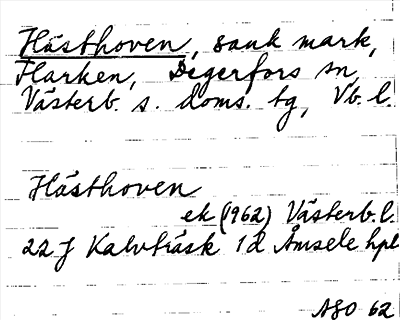 Hästhoven, sank mark,
Flarken, Degerfors sn,
Västerb. s. doms. tg, Vb. l.
Hästhoven
ek (1962) Västerb. l.
22 J Kalvträsk 1d Åmsele hpl
ASO 62